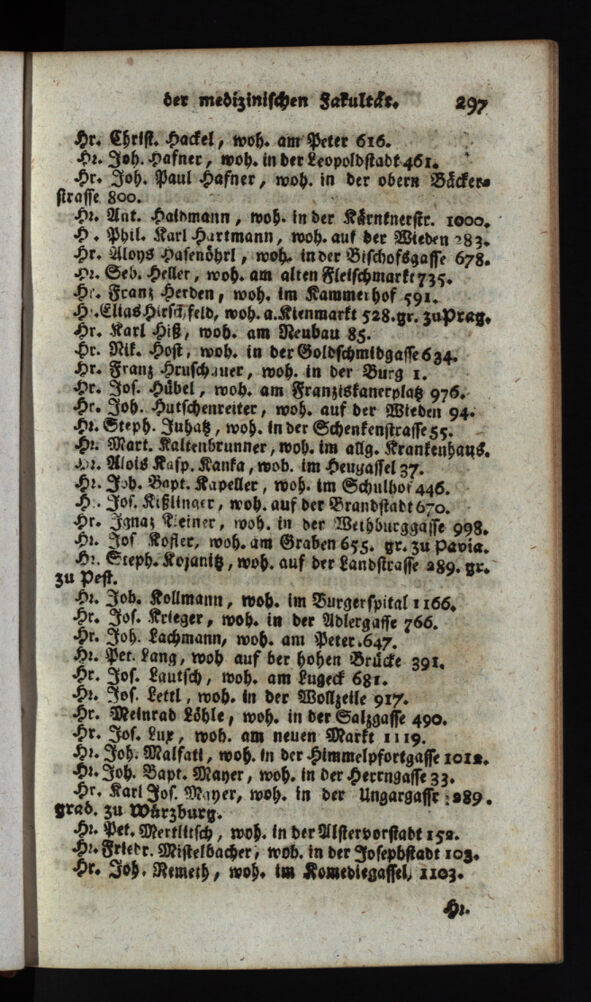 der medizinischen Fakultät. 297
Hr. Christ. Hackel, woh. am Peter 616.
Hr. Joh. Hafner, woh. in der Leopoldstadt 461.
Hr. Joh. Paul Hafner, woh. in der obern Bäcker-
strasse 800.
Hr. Ant. Haidmann, woh. in der Kärntnerstr. 1000.
H. Phil. Karl Hartmann, woh. auf der Wieden 283.
Hr. Aloys Hasenöhrl, woh. in der Bischofsgasse 678.
Hr. Seb. Heller, woh. am alten Fleischmarkt 735.
Hr. Franz Herden, woh. im Kammerhof 591.
H. Elias Hirschfeld, woh. a. Kienmarkt 528. gr. zu Prag.
Hr. Karl Hiß, woh. am Neubau 85.
Hr. Nik. Host, woh. in der Goldschmidgasse 634.
Hr. Franz Hruschauer, woh. in der Burg 1.
Hr. Jos. Hübel, woh. am Franziskanerplatz 976.
Hr. Joh. Hutschenreiter, woh. auf der Wieden 94.
Hr. Steph. Juhatz, woh. in der Schenkenstrasse 55.
Hr. Mart. Kaltenbrunner, woh. im allg. Krankenhaus.
Hr. Alois Kasp. Kanka, woh. im Heugassel 37.
Hr. Joh. Bapt. Kapeller, woh. im Schulhof 446.
H. Jos. Kißlinger, woh. auf der Brandstadt 670.
Hr. Ignaz Kleiner, woh. in der Weihburggasse 998.
Hr. Jos Kofler, woh. am Graben 655. gr. zu Pavia.
Hr. Steph. Kojanitz, woh. auf der Landstrasse 289. gr.
zu Pest.
Hr. Joh. Kollmann, woh. im Burgerspital 1166.
Hr. Jos. Krieger, woh. in der Adlergasse 766.
Hr. Joh. Lachmann, woh. am Peter. 647.
Hr. Pet. Lang, woh auf der hohen Brücke 391.
Hr. Jos. Lautsch, woh. am Lugeck 681.
Hr. Jos. Lettl, woh. in der Wollzeile 917.
Hr. Meinrad Löhle, woh. in der Salzgasse 490.
Hr. Jos. Lux, woh. am neuen Markt 1119.
Hr. Joh. Malfati, woh. in der Himmelpfortgasse 1012.
Hr. Joh. Bapt. Mayer, woh. in der Herrngasse 33.
Hr. Karl Jos. Mayer, woh. in der Ungargasse 289.
grad. zu Würzburg.
Hr. Pet. Mertlitsch, woh. in der Alstervorstadt 152.
Hr. Friedr. Mistelbacher, woh. in der Josephstadt 103.
Hr. Joh. Nemeth, woh. im Komediegassel, 1103.
Hr.